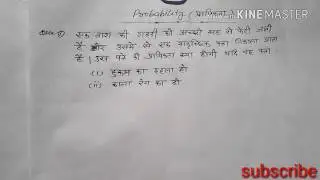 Probability (प्रायिकता)
KINEMASTER
एक ताश की गड्डी को अच्छी तरह से फेंटी जाती
है और उसमें से एक यादृच्छिक पत्ता निकाला जाता
है। इस पत्ते की प्रायिकता क्या होगी यदि वह पत्ता
(i) हुकम का दहला हो
(ii) काला रंग का हो
subscribe